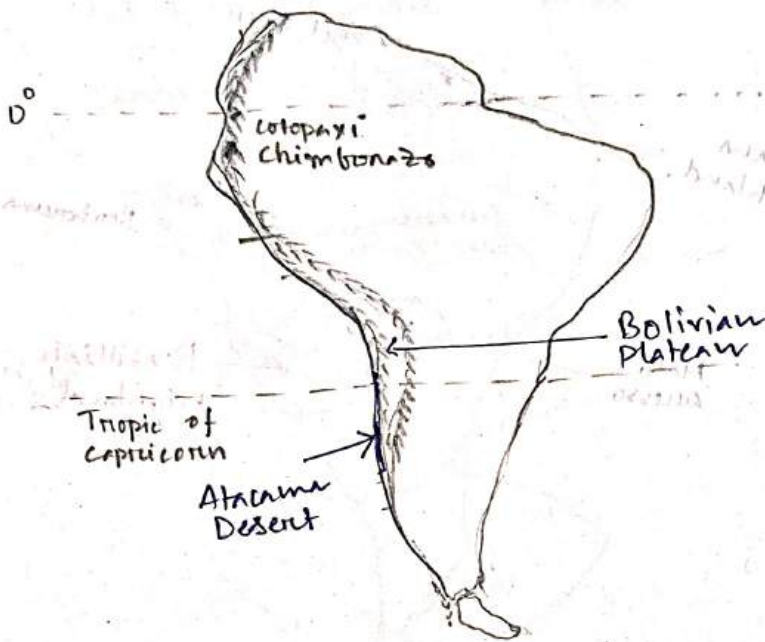 0°
Cotopaxi
Chimborazo
Bolivian
Plateau
Tropic of
Capricorn
Atacama
Desert